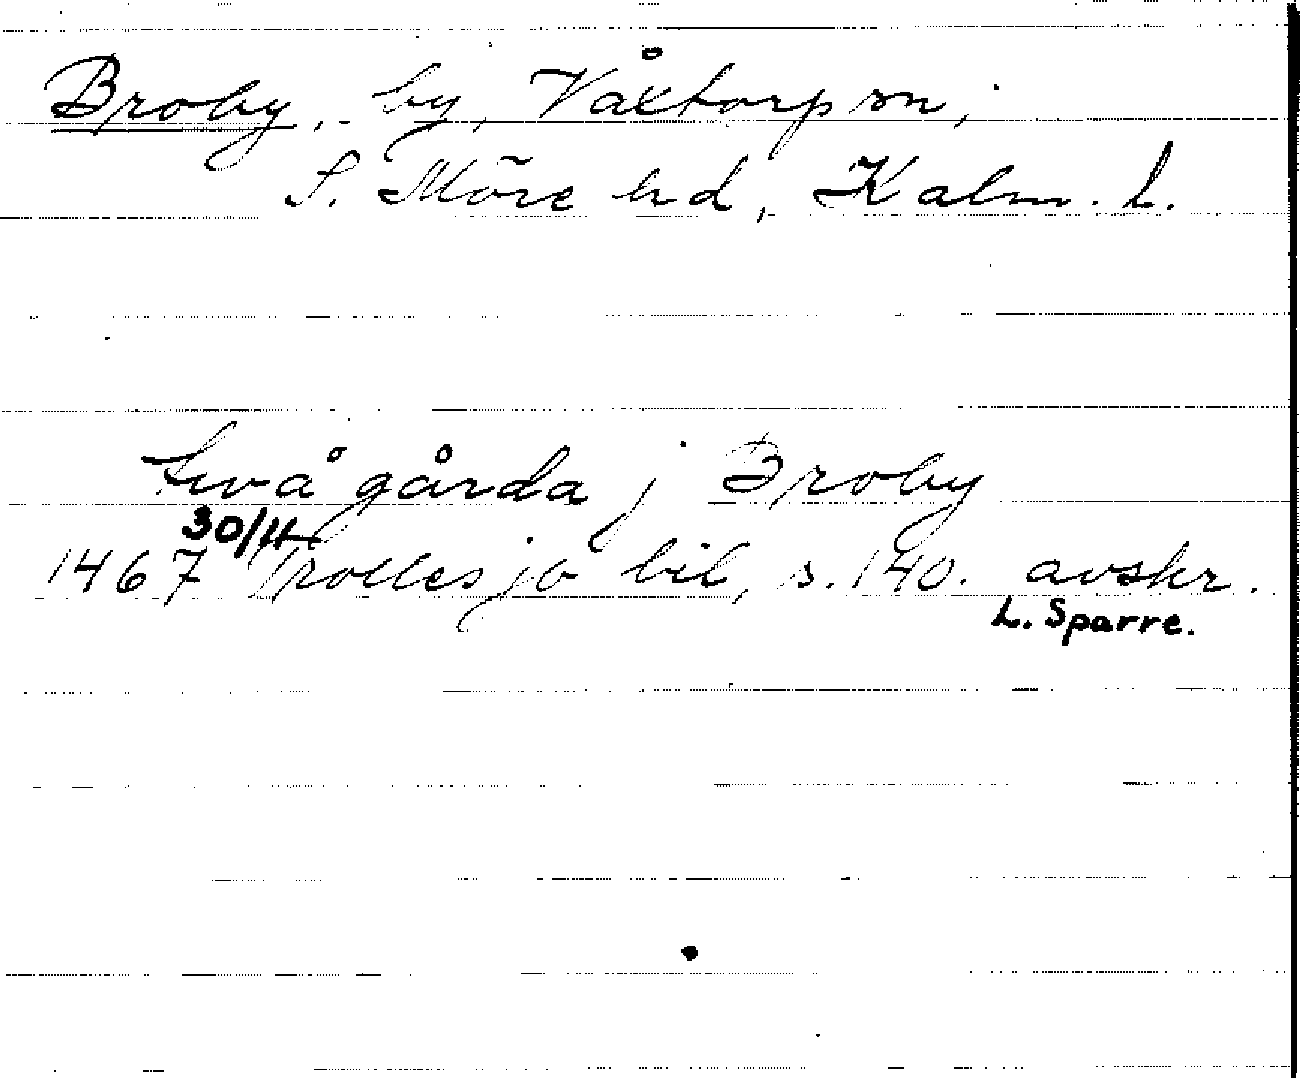 Broby, by, Våxtorp sn,
S. Möre hd, Kalm. l.
twå gårda j Broby
30/11
1467 Trollesjö bil, s. 140. avskr.
L. Sparre.